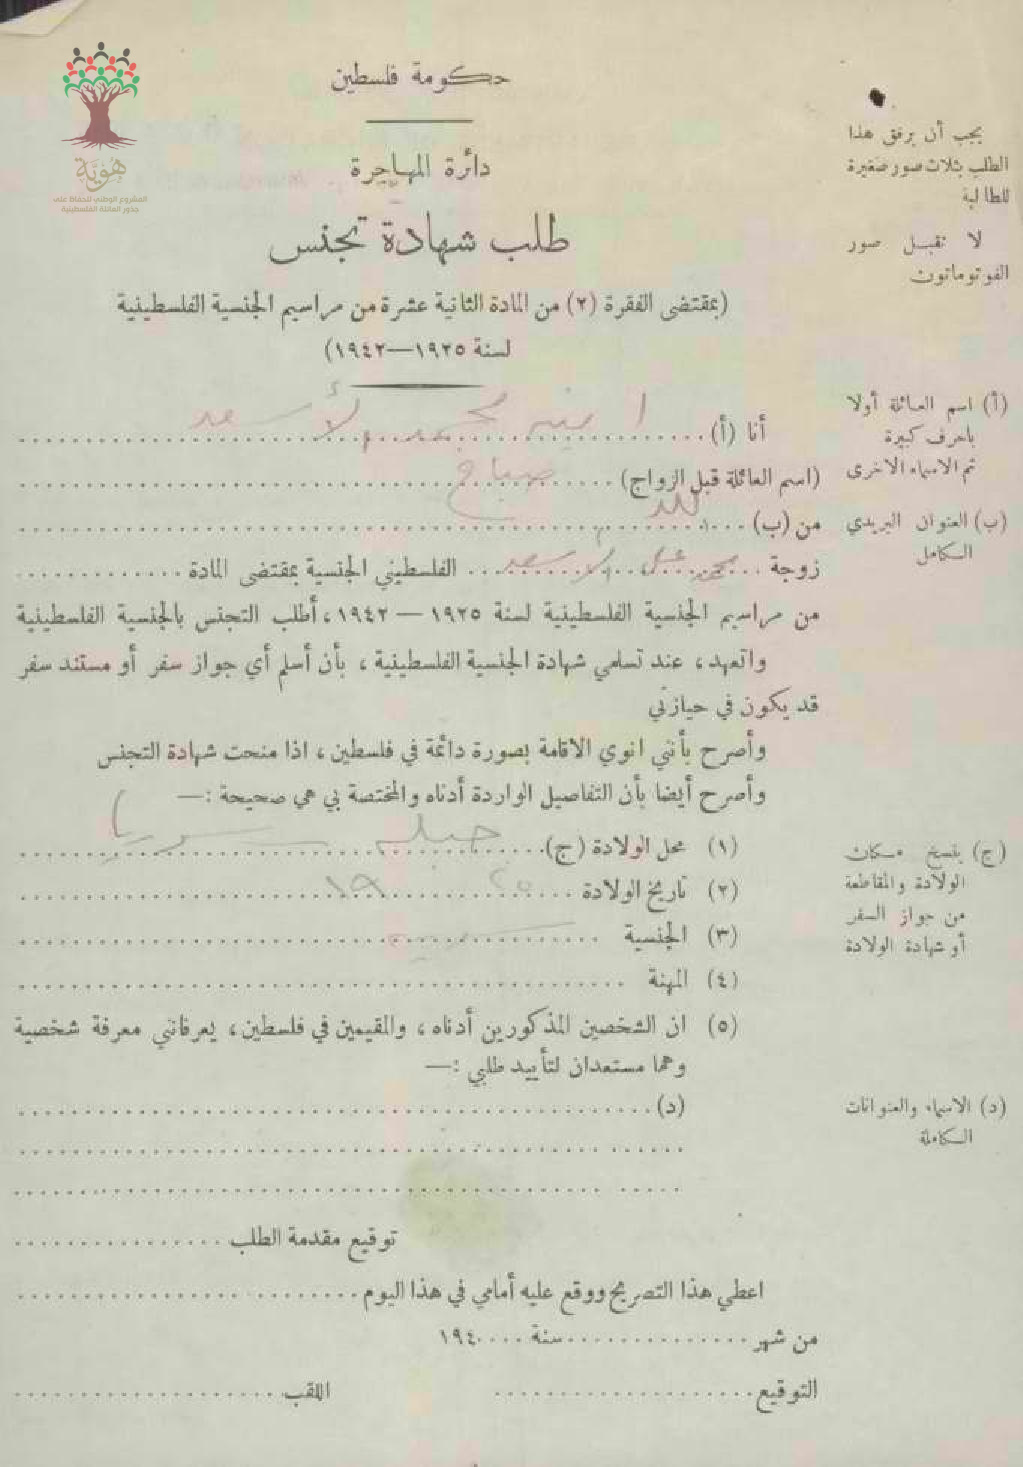 حكومة فلسطين
دائرة المهاجرة
طلب شهادة تجنس
(بمقتضى الفقرة (٢) من المادة الثانية عشرة من مراسيم الجنسية الفلسطينية
لسنة ١٩٢٥—١٩٤٢)
هُوِيَّة
المشروع الوطني للحفاظ على
جذور العائلة الفلسطينية
يجب أن يرفق هذا
الطلب بثلاث صور صغيرة
للطالبة
لا تقبل صور
الفوتوماتون
أنا (أ) امينه محمد الأسعد
(أ) اسم العائلة أولا
باحرف كبيرة
ثم الاسماء الاخرى
(اسم العائلة قبل الزواج) صباح
من (ب)
(ب) العنوان البريدي
الكامل
زوجة محمد علي الاسعد الفلسطيني الجنسية بمقتضى المادة
من مراسيم الجنسية الفلسطينية لسنة ١٩٢٥ — ١٩٤٢، أطلب التجنس بالجنسية الفلسطينية
واتعهد، عند تسلمي شهادة الجنسية الفلسطينية، بأن أسلم أي جواز سفر أو مستند سفر
قد يكون في حيازتي
وأصرح بأنني انوي الاقامة بصورة دائمة في فلسطين، اذا منحت شهادة التجنس
وأصرح أيضا بأن التفاصيل الواردة أدناه والمختصة بي هي صحيحة :—
(١) محل الولادة (ج) جبله سوريا
(ج) ينسخ مكان
الولادة والمقاطعة
من جواز السفر
أو شهادة الولادة
(٢) تاريخ الولادة
(٣) الجنسية
(٤) المهنة
(٥) ان الشخصين المذكورين أدناه، والمقيمين في فلسطين، يعرفانني معرفة شخصية
وهما مستعدان لتأييد طلبي :—
(د)
(د) الاسماء والعنوانات
الكاملة
توقيع مقدمة الطلب
اعطي هذا التصريح ووقع عليه أمامي في هذا اليوم
من شهر سنة ١٩٤٠
التوقيع اللقب